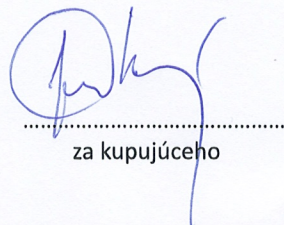 ........................................
za kupujúceho